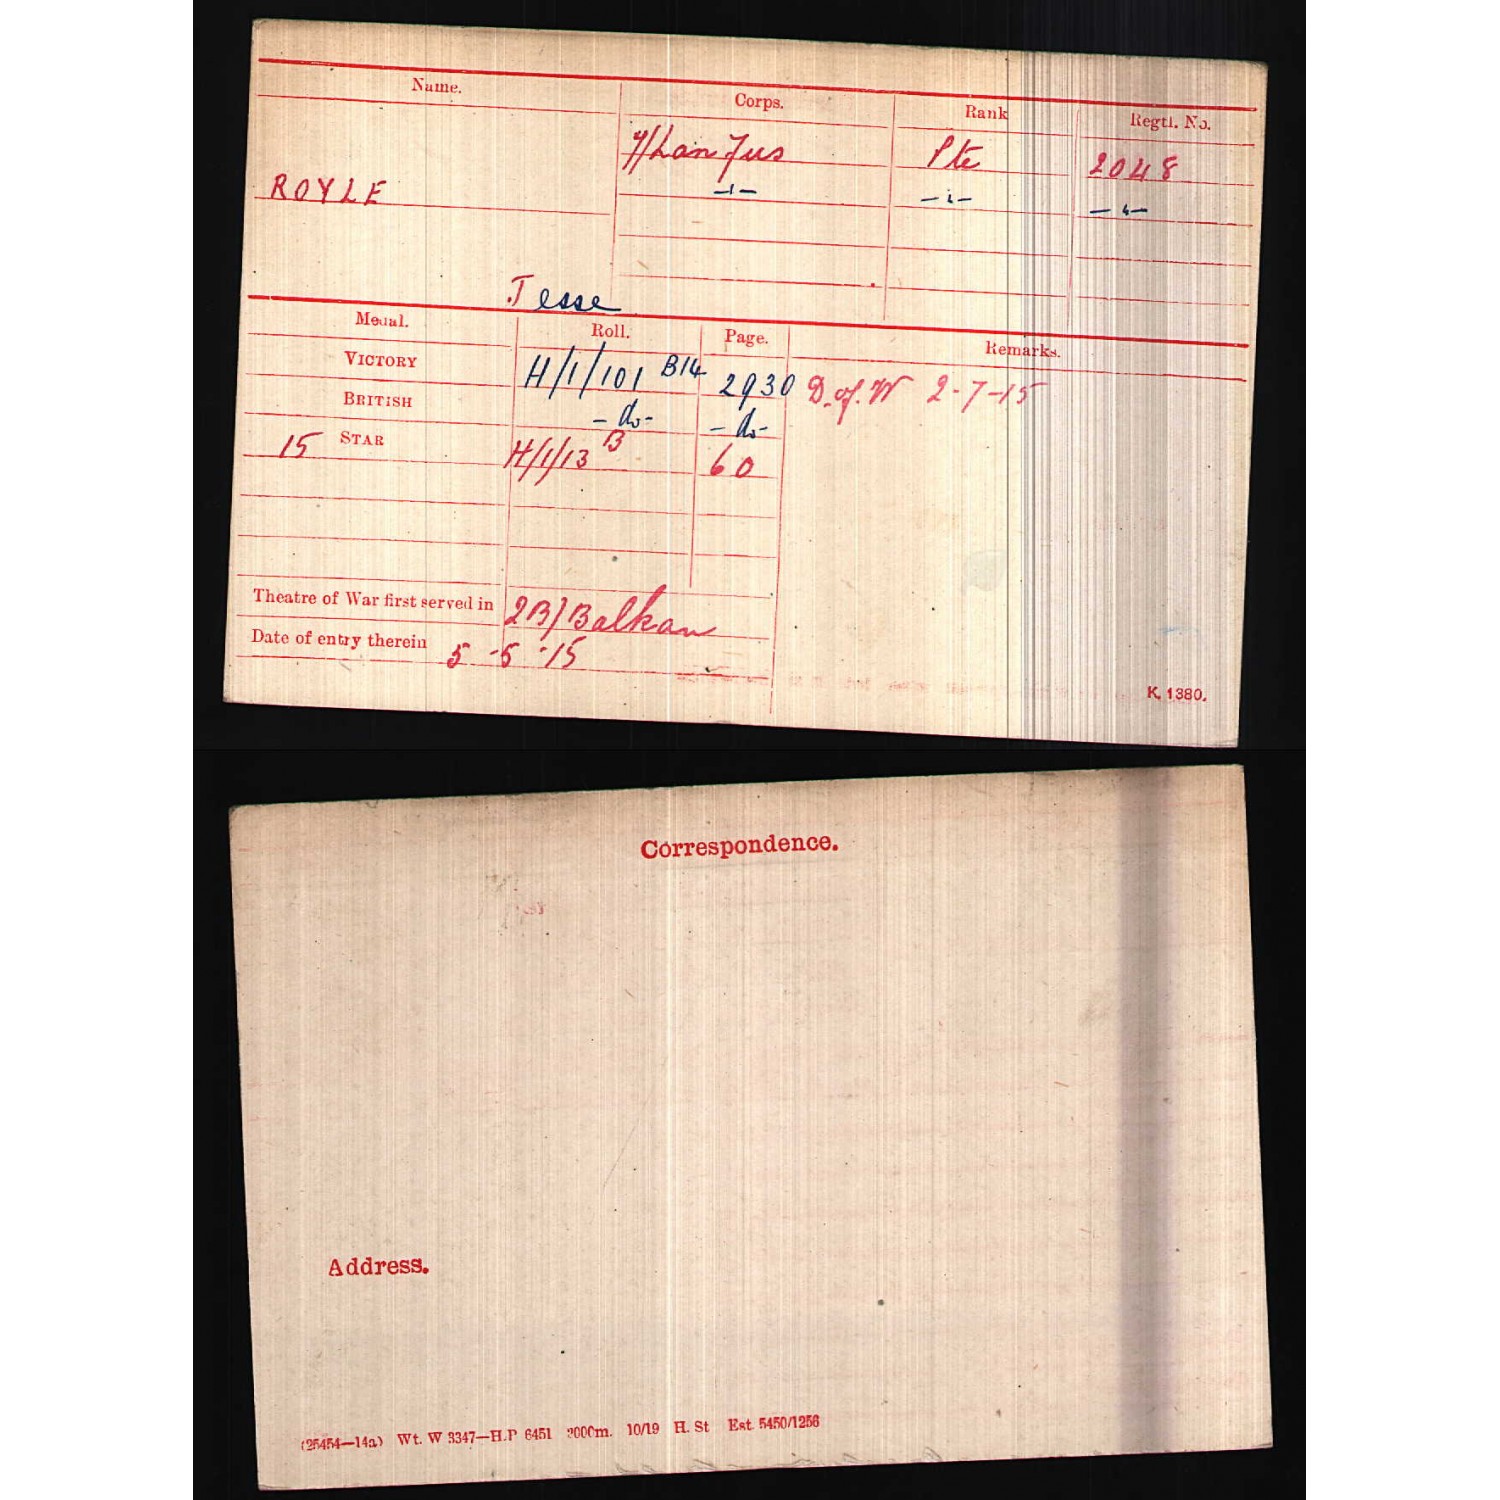 Name. Corps. Rank Regtl. No.
7/Lan Fus Pte 2048
ROYLE
Jesse
Medal. Roll. Page. Remarks.
VICTORY H/1/101 B14 2930 D. of. W 2-7-15
BRITISH -do- -do-
15 STAR H/1/13 B 60
Theatre of War first served in 2B) Balkan
Date of entry therein 5-5-15
K. 1380.
Correspondence.
Address.
(25454—14a) Wt. W 3347—H.P 6451 2000m. 10/19 H. St Est. 5450/1256